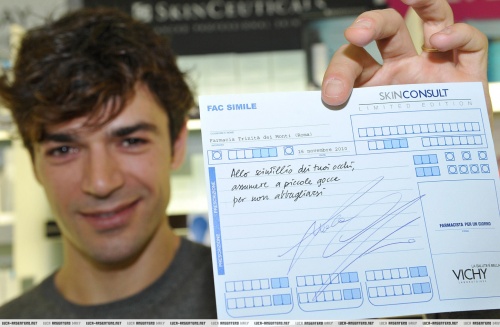 SKINCEUTICALS
FAC SIMILE
SKINCONSULT
LIMITED EDITION
Farmacia Trinità dei Monti (Roma)
16 novembre 2010
Allo scintillio dei tuoi occhi,
assumere a piccole gocce
per non abbagliarsi
FARMACISTA PER UN GIORNO
LA SALUTE È BELLA
VICHY
LABORATOIRES
LUCA-ARGENTERO.NET